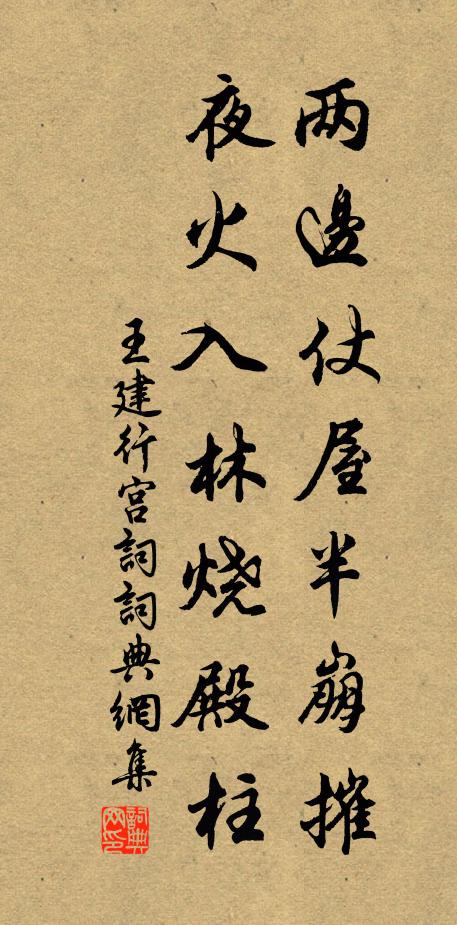 两邊仗屋半崩摧
夜火入林烧殿柱
王建行宫詞詞典網集
詞典网印